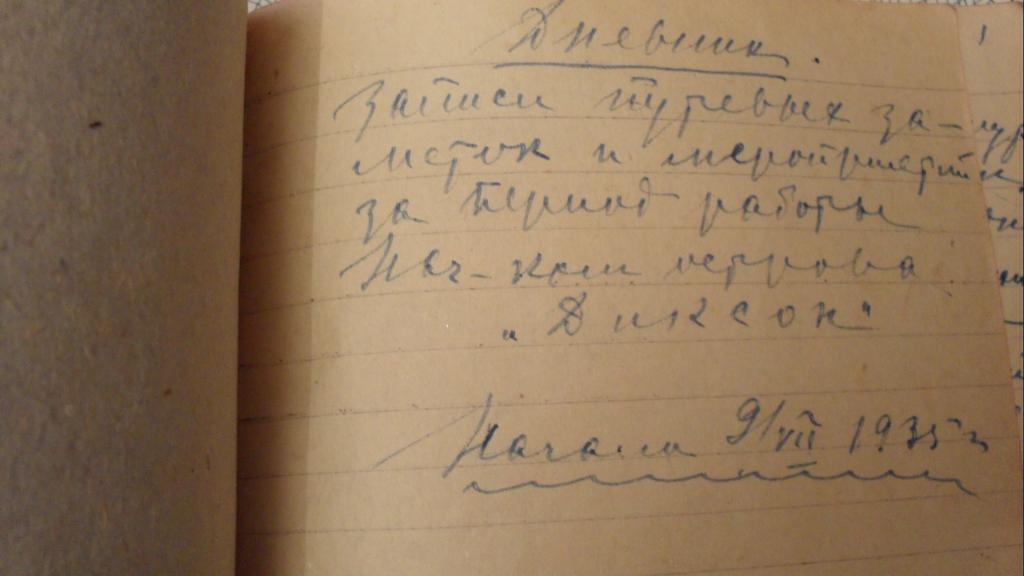 Дневник.
записи путевых за-
меток и мероприятий
за период работы
Нач-ком острова
„Диксон"
Начало 9/VII 1935 г